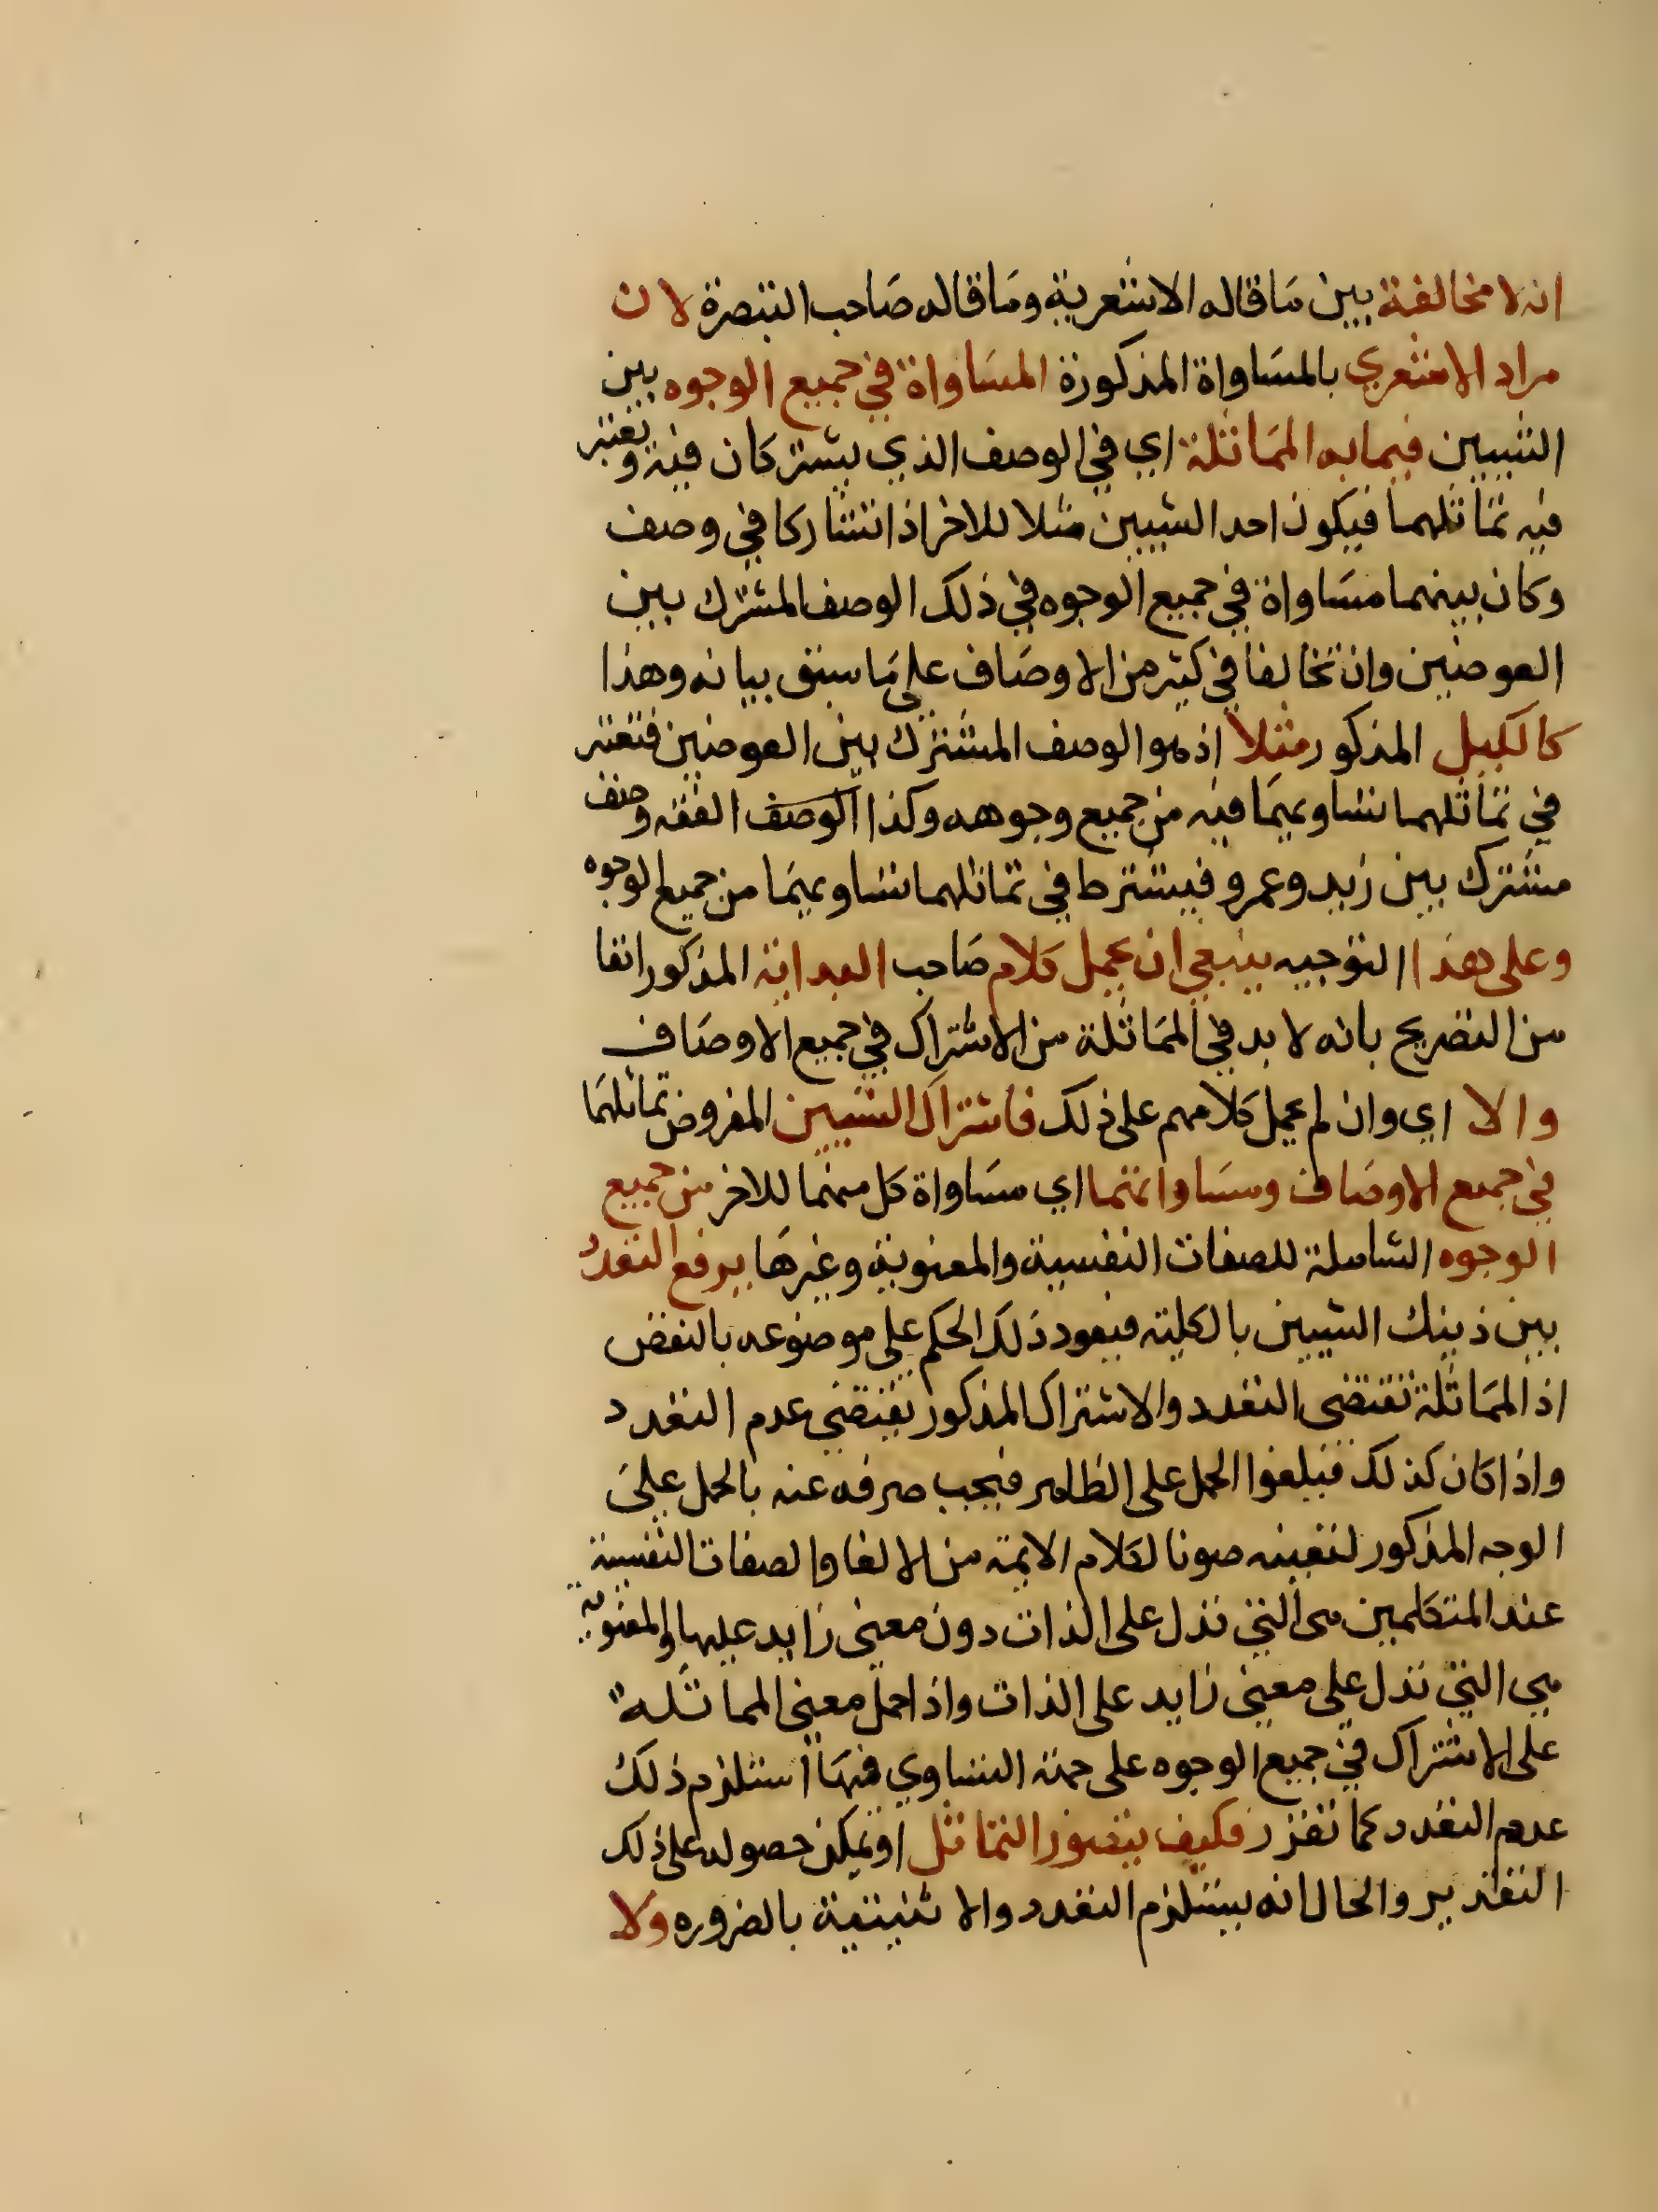 انه لا مخالفة بين ما قاله الاشعرية وما قاله صاحب التبصرة لان
مراد الاشعري بالمساواة المذكورة المساواة في جميع الوجوه بين
الشيين فيما به المماثلة اي في الوصف الذي يشتركان فيه وتعتبر
فيه تماثلهما فيكون احد الشيين مثلا للاخر اذا تشاركا في وصف
وكان بينهما مساواة في جميع الوجوه في ذلك الوصف المشترك بين
العوضين وان تخالفا في كثير من الاوصاف على ما سبق بيانه وهذا
كالكيل المذكور مثلا اذ هو الوصف المشترك بين العوضين فتعتبر
في تماثلهما تساويهما فيه من جميع وجوهه وكذا الوصف الفقه وصف
مشترك بين زيد وعمرو فيشترط في تماثلهما تساويهما من جميع الوجوه
وعلى هذا التوجيه ينبغي ان يحمل كلام صاحب البداية المذكور انفا
من التصريح بانه لا بد في المماثلة من الاشتراك في جميع الاوصاف
والا اي وان لم يحمل كلامهم على ذلك فاشتراك الشيين المفروض تماثلهما
في جميع الاوصاف ومساواتهما اي مساواة كل منهما للاخر من جميع
الوجوه الشاملة للصفات النفسية والمعنوية وغيرها يرفع التعدد
بين ذينك الشيين بالكلية فيعود ذلك الحكم على موضوعه بالنقض
اذ المماثلة تقتضى التعدد والاشتراك المذكور يقتضي عدم التعدد
واذا كان كذلك فيلغوا الحمل على الظاهر فيجب صرفه عنه بالحمل على
الوجه المذكور لتعينه صونا لكلام الايمة من الالغا والصفات النفسية
عند المتكلمين هى التي تدل على الذات دون معنى زايد عليها والمعنوية
هي التي تدل على معنى زايد على الذات واذا حمل معنى المماثلة
على الاشتراك في جميع الوجوه على جهة التساوي فيها استلزم ذلك
عدم التعدد كما تقرر فكيف يتصور التماثل او يمكن حصوله على ذلك
التقدير والحال انه يستلزم التعدد والاثنينية بالضروره ولا